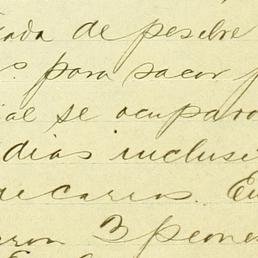 ada de pesebre
para sacar
ial se ocuparo
dias inclusi
de carros. En
eron 3 peones